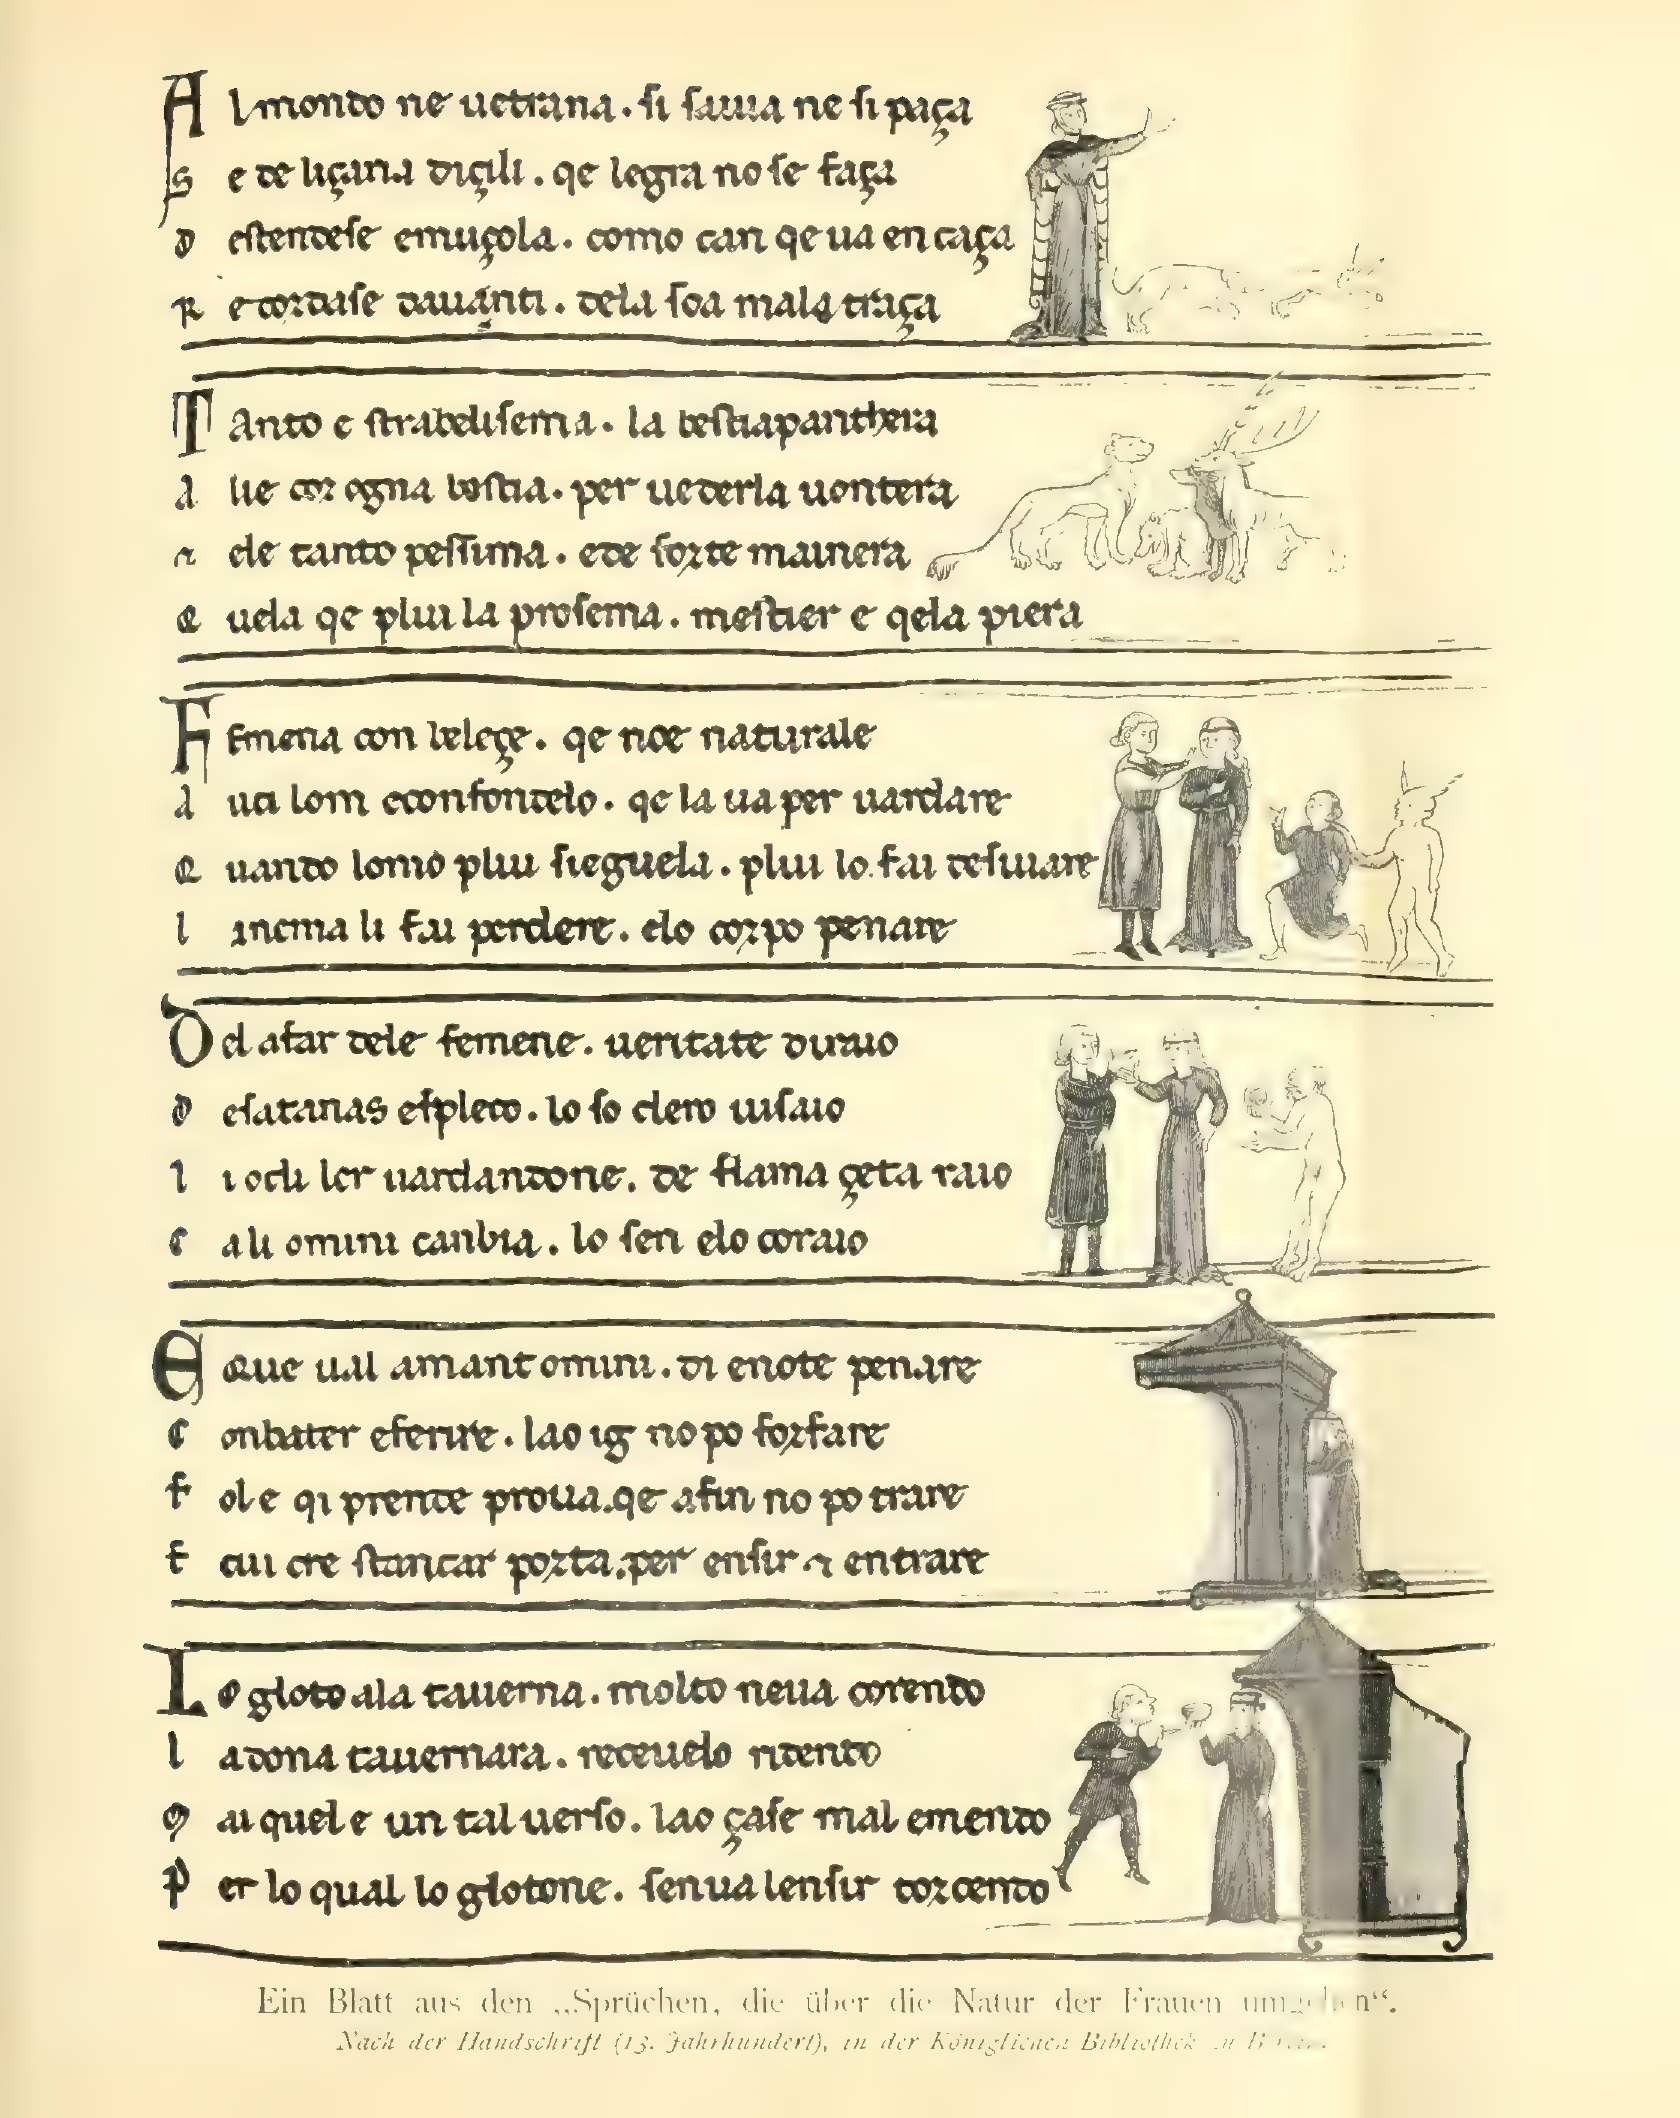 A l mondo ne uetrana . si saiua ne si paça
S e de liçama diçili . qe legra no se faça
D estendese emuçola . como can qe ua en caça
R ecordase dauanti . dela soa mala traça
T anto e strabelisema . la bestia panthera
A lie cor ogna bestia . per uederla uontera
⁊ ele tanto pessima . ede forte mainera
Q uela qe plui la prosema . mestier e qela piera
F emena con beleçe . qe noe naturale
A uci lom econfondelo . qe la ua per uardare
Q uando lomo plui sieguela . plui lo fai desuiare
l anema li fai perdere . elo corpo penare
D el afar dele femene . ueritate diraio
D esatanas espleco . lo so clero uisaio
l i ocli ler uardandone . de flama çeta raio
C ali omini canbia . lo sen elo coraio
E Que ual amant omini . di enote penare
C onbater eferire . lao ig no po forfare
F ol e qi prende proua . qe afin no po trare
E cui cre stancar porta . per ensir ⁊ entrare
L o gloto ala tauerna . molto neua corendo
l a dona tauernara . receuelo ridendo
M ai quel e un tal uerso . lao çase mal emendo
P er lo qual lo glotone . senua lensir dorcendo
Ein Blatt aus den „Sprüchen, die über die Natur der Frauen umgehen“.
Nach der Handschrift (13. Jahrhundert), in der Königlichen Bibliothek